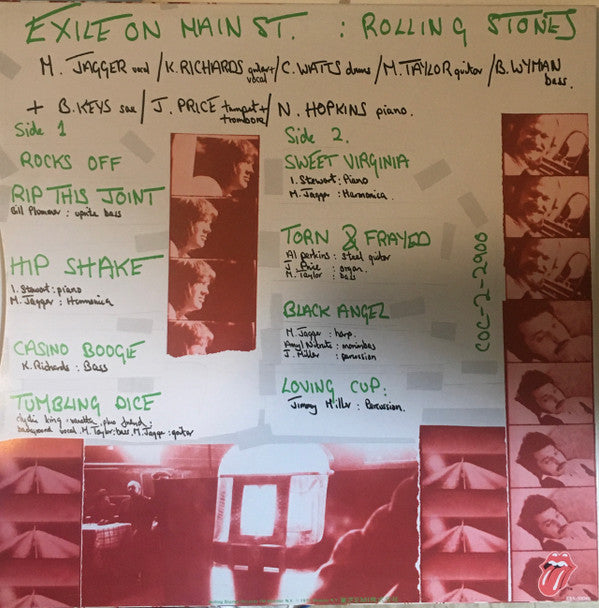 EXILE ON MAIN ST. : ROLLING STONES
M. JAGGER vocal / K. RICHARDS guitar + vocal / C. WATTS drums / M. TAYLOR guitar / B. WYMAN bass.
+ B. KEYS sax / J. PRICE trumpet + trombone / N. HOPKINS piano.
Side 1
ROCKS OFF
RIP THIS JOINT
Bill Plummer : uprite bass
HIP SHAKE
I. Stewart : piano
M. Jagger : Harmonica
CASINO BOOGIE
K. Richards : Bass
TUMBLING DICE
clydie king . vanetta . plus friend :
background vocal. M. Taylor : bass. M. Jagger : guitar
Side 2.
SWEET VIRGINIA
I. Stewart : Piano
M. Jagger : Harmonica.
TORN & FRAYED
Al perkins : steel guitar
J. Price : organ.
M. Taylor : bass
BLACK ANGEL
M. Jagger : harp.
Amyl Nitrate : marimbas
J. Miller : percussion
LOVING CUP :
Jimmy Miller : Percussion.
COC-2-2900